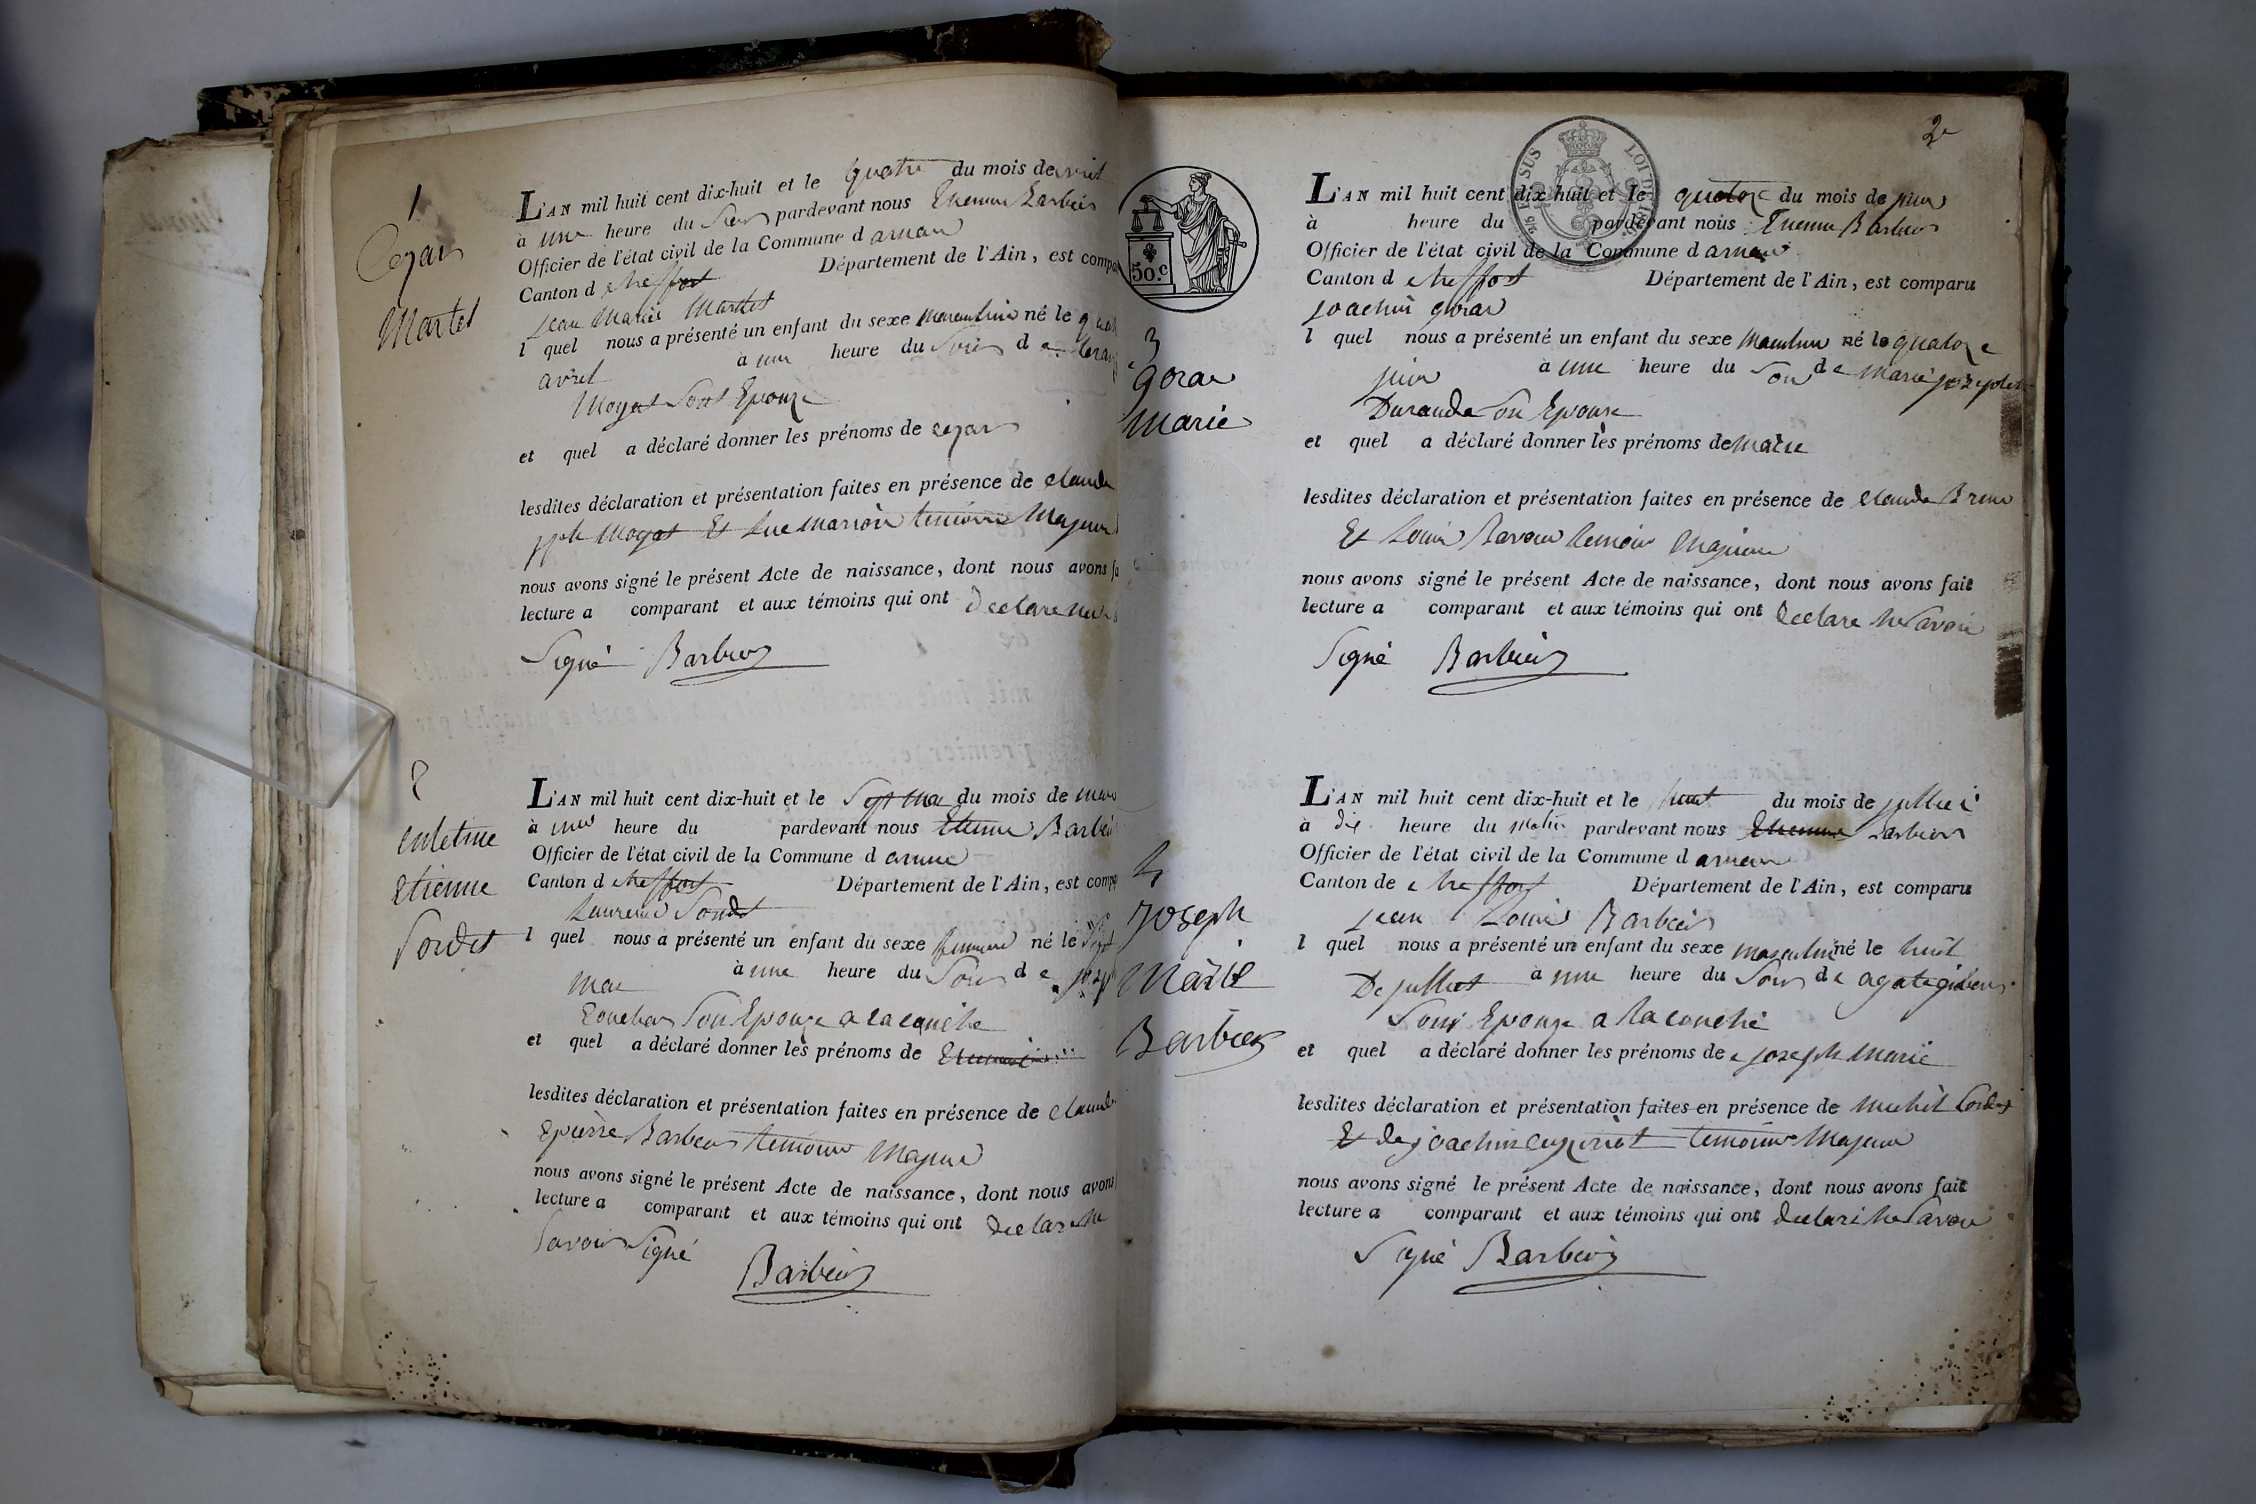 1
Cezar
Martet
L'AN mil huit cent dix-huit et le quatre du mois de avril
à une heure du Soir pardevant nous Etienne Barbier
Officier de l'état civil de la Commune d arnan
Canton d cheffort Département de l'Ain, est compa
jean Marie Martet
l quel nous a présenté un enfant du sexe Masculin né le
avril à une heure du Soir d e
Moyat Son Epouze
et quel a déclaré donner les prénoms de cezar
lesdites déclaration et présentation faites en présence de claude
jph Moyat Et Luc Marion temoins Majeur
nous avons signé le présent Acte de naissance, dont nous avons fa
lecture a comparant et aux témoins qui ont declare
Signé Barbier
2
Etienne
Sordet
L'AN mil huit cent dix-huit et le Sept Mai du mois de
à une heure du pardevant nous Etienne Barbier
Officier de l'état civil de la Commune d arnan
Canton d cheffort Département de l'Ain, est compa
Laurent Sordet
l quel nous a présenté un enfant du sexe né le Sept
mai à une heure du Soir d e
Son Epouze a la couche
et quel a déclaré donner les prénoms de
lesdites déclaration et présentation faites en présence de claude
Epierre Barbier temoins Majeur
nous avons signé le présent Acte de naissance, dont nous avons
lecture a comparant et aux témoins qui ont declare ne
Savoir Signé
Barbier
2e
50.c
LOI DE 1816
EN SUS
3
Marie
L'AN mil huit cent dix-huit et le quatorze du mois de juin
à heure du pardevant nous Etienne Barbier
Officier de l'état civil de la Commune d arnan
Canton d cheffort Département de l'Ain, est comparu
joachin
l quel nous a présenté un enfant du sexe Masculin né le quatorze
juin à une heure du Soir d e Marie josephte
Durande Son Epouse
et quel a déclaré donner les prénoms de Marie
lesdites déclaration et présentation faites en présence de claude
Et Louis temoin Majeur
nous avons signé le présent Acte de naissance, dont nous avons fait
lecture a comparant et aux témoins qui ont declare ne Savoir
Signé Barbier
4
Joseph
Marie
Barbier
L'AN mil huit cent dix-huit et le huit du mois de juillet
à dix heure du Matin pardevant nous Etienne Barbier
Officier de l'état civil de la Commune d arnan
Canton de cheffort Département de l'Ain, est comparu
jean Louis Barbier
l quel nous a présenté un enfant du sexe masculin né le huit
De juillet à une heure du Soir d e agate
Son Epouze a la couche
et quel a déclaré donner les prénoms de joseph Marie
lesdites déclaration et présentation faites en présence de Michel Sordet
Et de joachin temoins Majeur
nous avons signé le présent Acte de naissance, dont nous avons fait
lecture a comparant et aux témoins qui ont declare ne Savoir
Signé Barbier